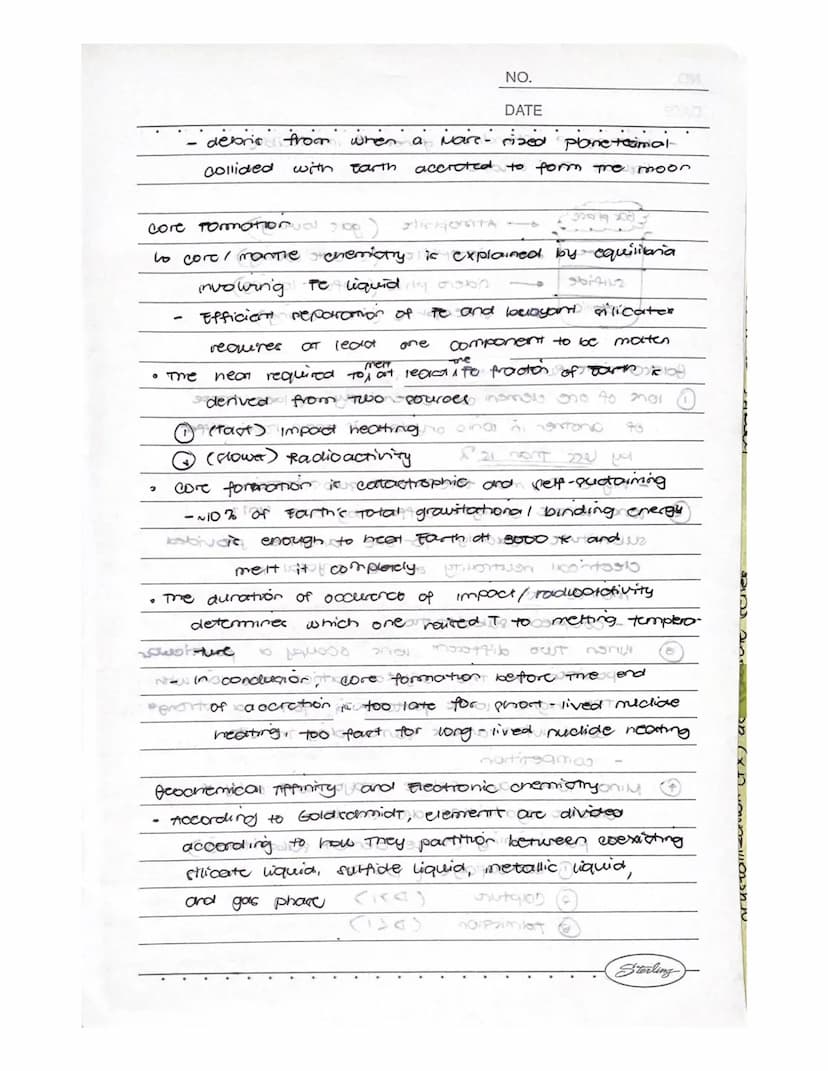 NO.
DATE
- debris from when a Mars-sized planetesimal
collided with Earth accreted to form the moon
Core Formation
↳ core/mantle chemistry is explained by equilibria
involving Fe liquid
- Efficient separation of Fe and buoyant silicates
requires at least one component to be molten
• The heat required to melt at least the Fe fraction of Earth is
derived from two sources
① (fast) Impact heating
② (slower) Radioactivity
• Core formation is catastrophic and self-sustaining
- ~10% of Earth's total gravitational binding energy
is enough to heat Earth at 3000 K and
melt it completely
• The duration of occurence of impact/radioactivity
determines which one raised T to melting tempera-
ture
- In conclusion, core formation before the end
of accretion is too late for short-lived nuclide
heating, too fast for long-lived nuclide heating
Geochemical Affinity and Electronic chemistry
• According to Goldschmidt, elements are divided
according to how they partition between coexisting
silicate liquid, sulfide liquid, metallic liquid,
and gas phase
Sterling